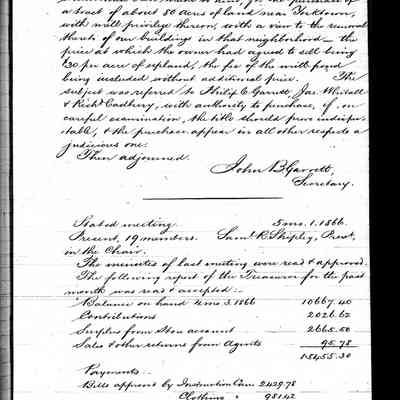 a tract of about 88 acres of land near Yorktown,
with mill privilege thereon, with a view to the removal
there of our buildings in that neighborhood — the
price at which the owner had agreed to sell being
$30 per acre of upland, the fee of the mill pond
being included without additional price. The
subject was referred to Philip C. Garrett, Jas. Whitall
& Richd Cadbury, with authority to purchase, if, on
careful examination, the title should prove indispu-
table, & the purchase appear in all other respects a
judicious one.
Then adjourned.
John B. Garrett,
Secretary.
Stated meeting 5 mo. 1. 1866.
Present, 19 members. Saml. R. Shipley, Prest.,
in the Chair.
The minutes of last meeting were read & approved.
The following report of the Treasurer for the past
month was read & accepted:—
Balance on hand 4 mo. 3. 1866 10667.40
Contributions 2026.62
Surplus from Store account 2665.50
Sales & other returns from Agents 95.78
15455.30
Payments
Bills approved by Instruction Com 2429.78
Clothing " 981.42